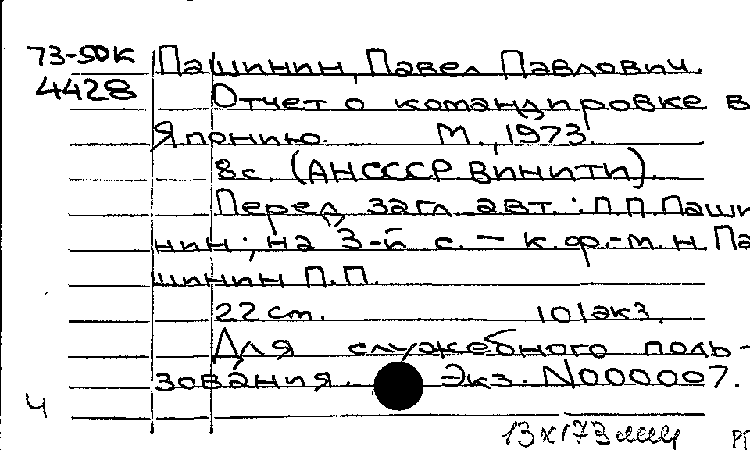 73-50К Пашинин, Павел Павлович.
4428 Отчет о командировке в
Японию. М., 1973.
8с. (АНСССР ВИНИТИ).
Перед загл. авт.: П.П. Паши
нин; на 3-й с. – к.ф.-м.н. Па
шинин П.П.
22 ст. 101экз.
Для служебного поль-
зования. Экз. N000007.
Ч
13х173